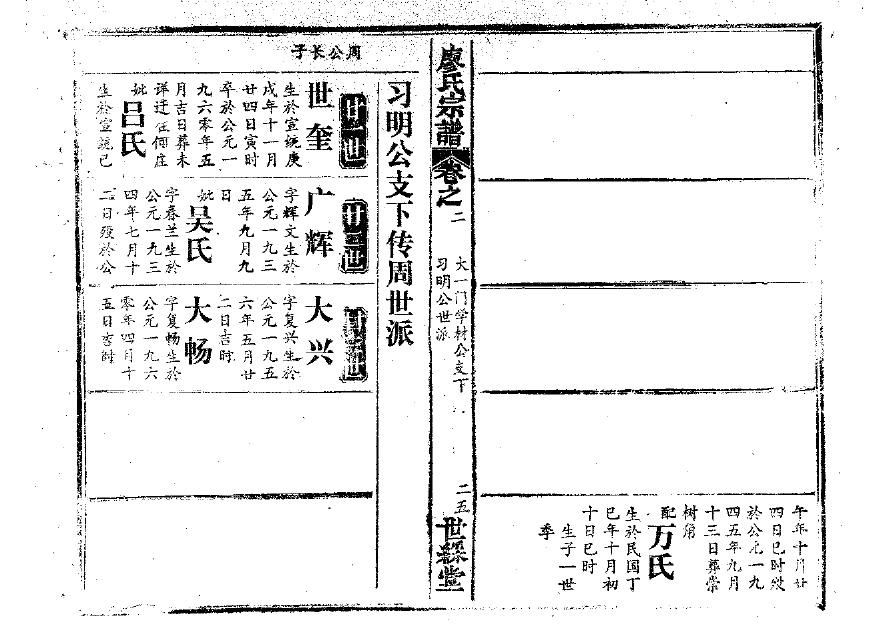 午年十月廿
四日巳时殁
於公元一九
四五年九月
十三日葬棠
树角
配
万氏
生於民国丁
巳年十月初
十日巳时
生子一世
季
廖氏宗譜
卷之二
大一门学材公支下
习明公世派
二五
世綵堂
习明公支下传周世派
周公长子
廿二世
世奎
生於宣統庚
戌年十一月
廿四日寅时
卒於公元一
九六零年五
月吉日葬未
详迁征倾庄
妣
吕氏
生於宣統己
廿三世
广辉
字辉文生於
公元一九三
五年九月九
日
妣
吴氏
字春兰生於
公元一九三
四年七月十
二日殁於公
大兴
字复兴生於
公元一九五
六年五月廿
二日吉时
大畅
字复畅生於
公元一九六
零年四月十
五日吉时